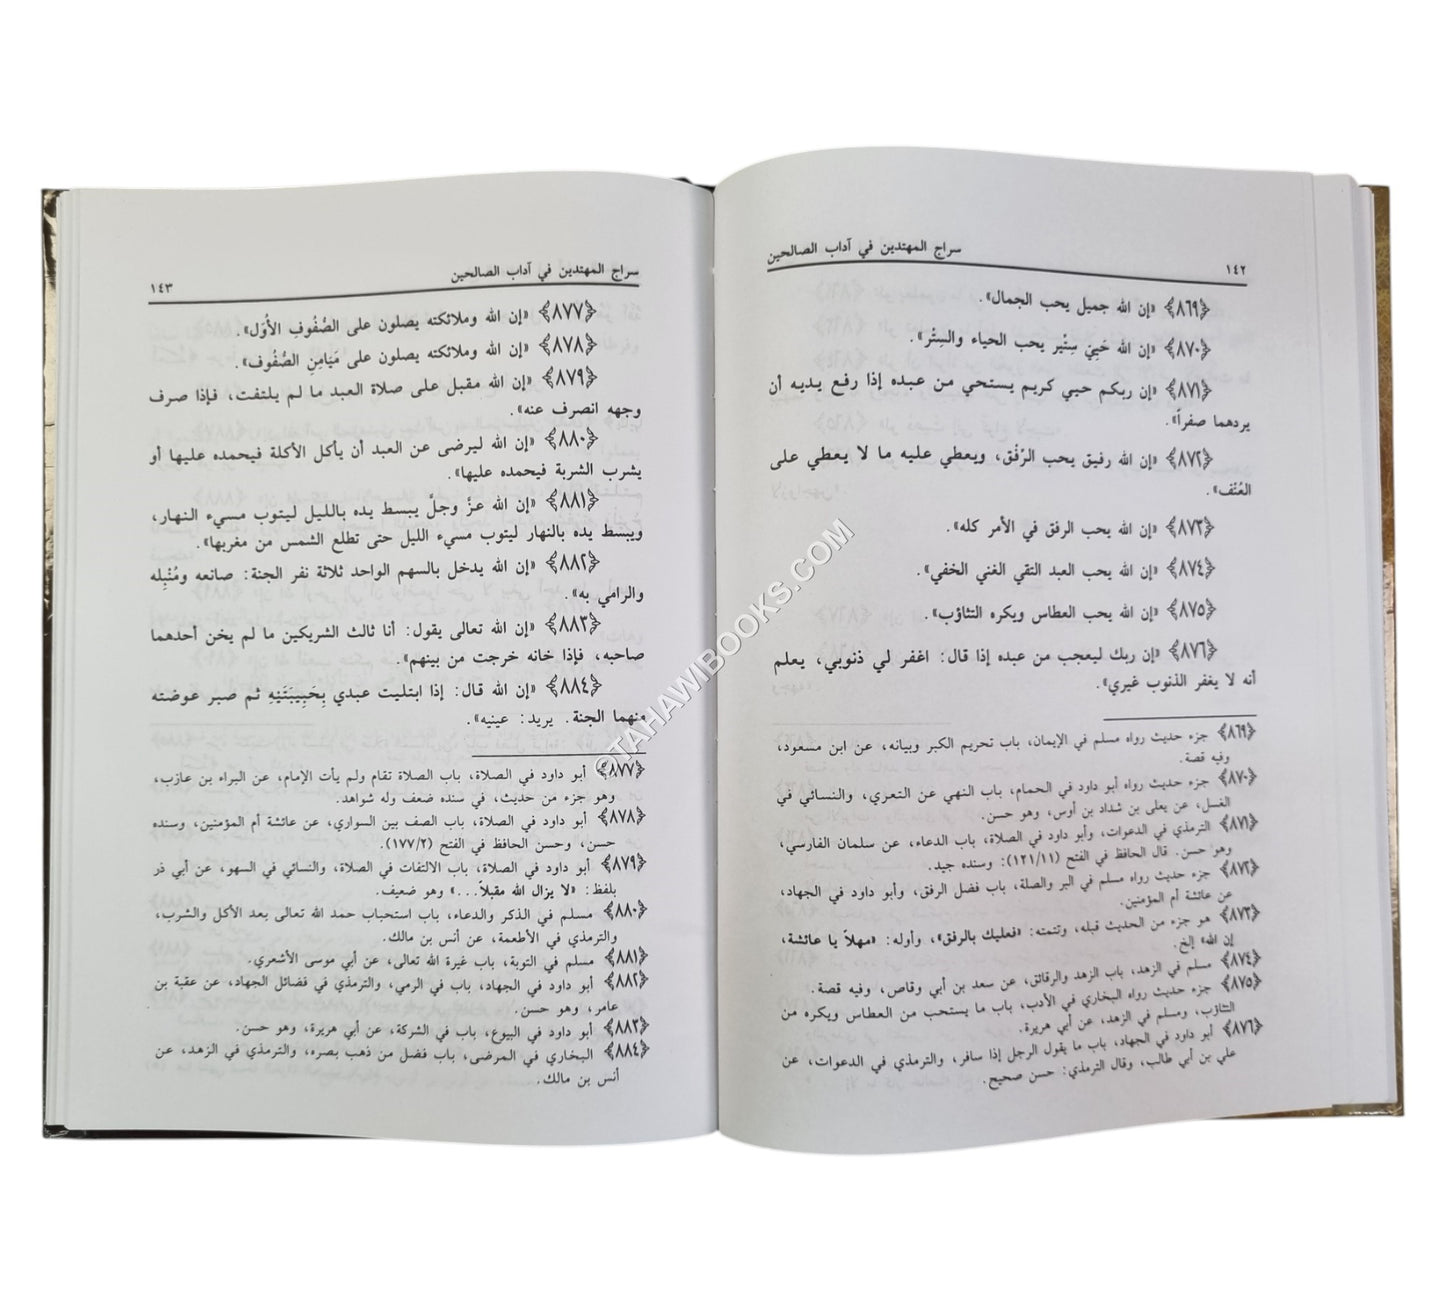 ١٤٢ سراج المهتدين في آداب الصالحين
﴿٨٦٩﴾ «إن الله جميل يحب الجمال».
﴿٨٧٠﴾ «إن الله حَييّ سِتّير يحب الحياء والسِتْر».
﴿٨٧١﴾ «إن ربكم حيي كريم يستحي من عبده إذا رفع يديه أن
يردهما صفراً».
﴿٨٧٢﴾ «إن الله رفيق يحب الرِّفْق، ويعطي عليه ما لا يعطي على
العُنْف».
﴿٨٧٣﴾ «إن الله يحب الرفق في الأمر كله».
﴿٨٧٤﴾ «إن الله يحب العبد التقي الغني الخفي».
﴿٨٧٥﴾ «إن الله يحب العطاس ويكره التثاؤب».
﴿٨٧٦﴾ «إن ربك ليعجب من عبده إذا قال: اغفر لي ذنوبي، يعلم
أنه لا يغفر الذنوب غيري».
﴿٨٦٩﴾ جزء حديث رواه مسلم في الإيمان، باب تحريم الكبر وبيانه، عن ابن مسعود،
وفيه قصة.
﴿٨٧٠﴾ جزء حديث رواه أبو داود في الحمام، باب النهي عن التعري، والنسائي في
الغسل، عن يعلى بن شداد بن أوس، وهو حسن.
﴿٨٧١﴾ الترمذي في الدعوات، وأبو داود في الصلاة، باب الدعاء، عن سلمان الفارسي،
وهو حسن. قال الحافظ في الفتح (١٢١/١١): وسنده جيد.
﴿٨٧٢﴾ جزء حديث رواه مسلم في البر والصلة، باب فضل الرفق، وأبو داود في الجهاد،
عن عائشة أم المؤمنين.
﴿٨٧٣﴾ هو جزء من الحديث قبله، وتتمته: «فعليك بالرفق»، وأوله: «مهلاً يا عائشة،
إن الله» إلخ.
﴿٨٧٤﴾ مسلم في الزهد، باب الزهد والرقائق، عن سعد بن أبي وقاص، وفيه قصة.
﴿٨٧٥﴾ جزء حديث رواه البخاري في الأدب، باب ما يستحب من العطاس ويكره من
التثاؤب، ومسلم في الزهد، عن أبي هريرة.
﴿٨٧٦﴾ أبو داود في الجهاد، باب ما يقول الرجل إذا سافر، والترمذي في الدعوات، عن
علي بن أبي طالب، وقال الترمذي: حسن صحيح.
سراج المهتدين في آداب الصالحين ١٤٣
﴿٨٧٧﴾ «إن الله وملائكته يصلون على الصُّفُوفِ الأُوَل».
﴿٨٧٨﴾ «إن الله وملائكته يصلون على مَيَامِنِ الصُّفُوف».
﴿٨٧٩﴾ «إن الله مقبل على صلاة العبد ما لم يلتفت، فإذا صرف
وجهه انصرف عنه».
﴿٨٨٠﴾ «إن الله ليرضى عن العبد أن يأكل الأكلة فيحمده عليها أو
يشرب الشربة فيحمده عليها».
﴿٨٨١﴾ «إن الله عزَّ وجلَّ يبسط يده بالليل ليتوب مسيء النهار،
ويبسط يده بالنهار ليتوب مسيء الليل حتى تطلع الشمس من مغربها».
﴿٨٨٢﴾ «إن الله يدخل بالسهم الواحد ثلاثة نفر الجنة: صانعه ومُنْبِله
والرامي به».
﴿٨٨٣﴾ «إن الله تعالى يقول: أنا ثالث الشريكين ما لم يخن أحدهما
صاحبه، فإذا خانه خرجت من بينهم».
﴿٨٨٤﴾ «إن الله قال: إذا ابتليت عبدي بِحَبِيبَتَيْهِ ثم صبر عوضته
منهما الجنة. يريد: عينيه».
﴿٨٧٧﴾ أبو داود في الصلاة، باب الصلاة تقام ولم يأت الإمام، عن البراء بن عازب،
وهو جزء من حديث، في سنده ضعف وله شواهد.
﴿٨٧٨﴾ أبو داود في الصلاة، باب الصف بين السواري، عن عائشة أم المؤمنين، وسنده
حسن، وحسن الحافظ في الفتح (١٧٧/٢).
﴿٨٧٩﴾ أبو داود في الصلاة، باب الالتفات في الصلاة، والنسائي في السهو، عن أبي ذر
بلفظ: «لا يزال الله مقبلاً...» وهو ضعيف.
﴿٨٨٠﴾ مسلم في الذكر والدعاء، باب استحباب حمد الله تعالى بعد الأكل والشرب،
والترمذي في الأطعمة، عن أنس بن مالك.
﴿٨٨١﴾ مسلم في التوبة، باب غيرة الله تعالى، عن أبي موسى الأشعري.
﴿٨٨٢﴾ أبو داود في الجهاد، باب في الرمي، والترمذي في فضائل الجهاد، عن عقبة بن
عامر، وهو حسن.
﴿٨٨٣﴾ أبو داود في البيوع، باب في الشركة، عن أبي هريرة، وهو حسن.
﴿٨٨٤﴾ البخاري في المرضى، باب فضل من ذهب بصره، والترمذي في الزهد، عن
أنس بن مالك.
©TAHAWIBOOKS.COM